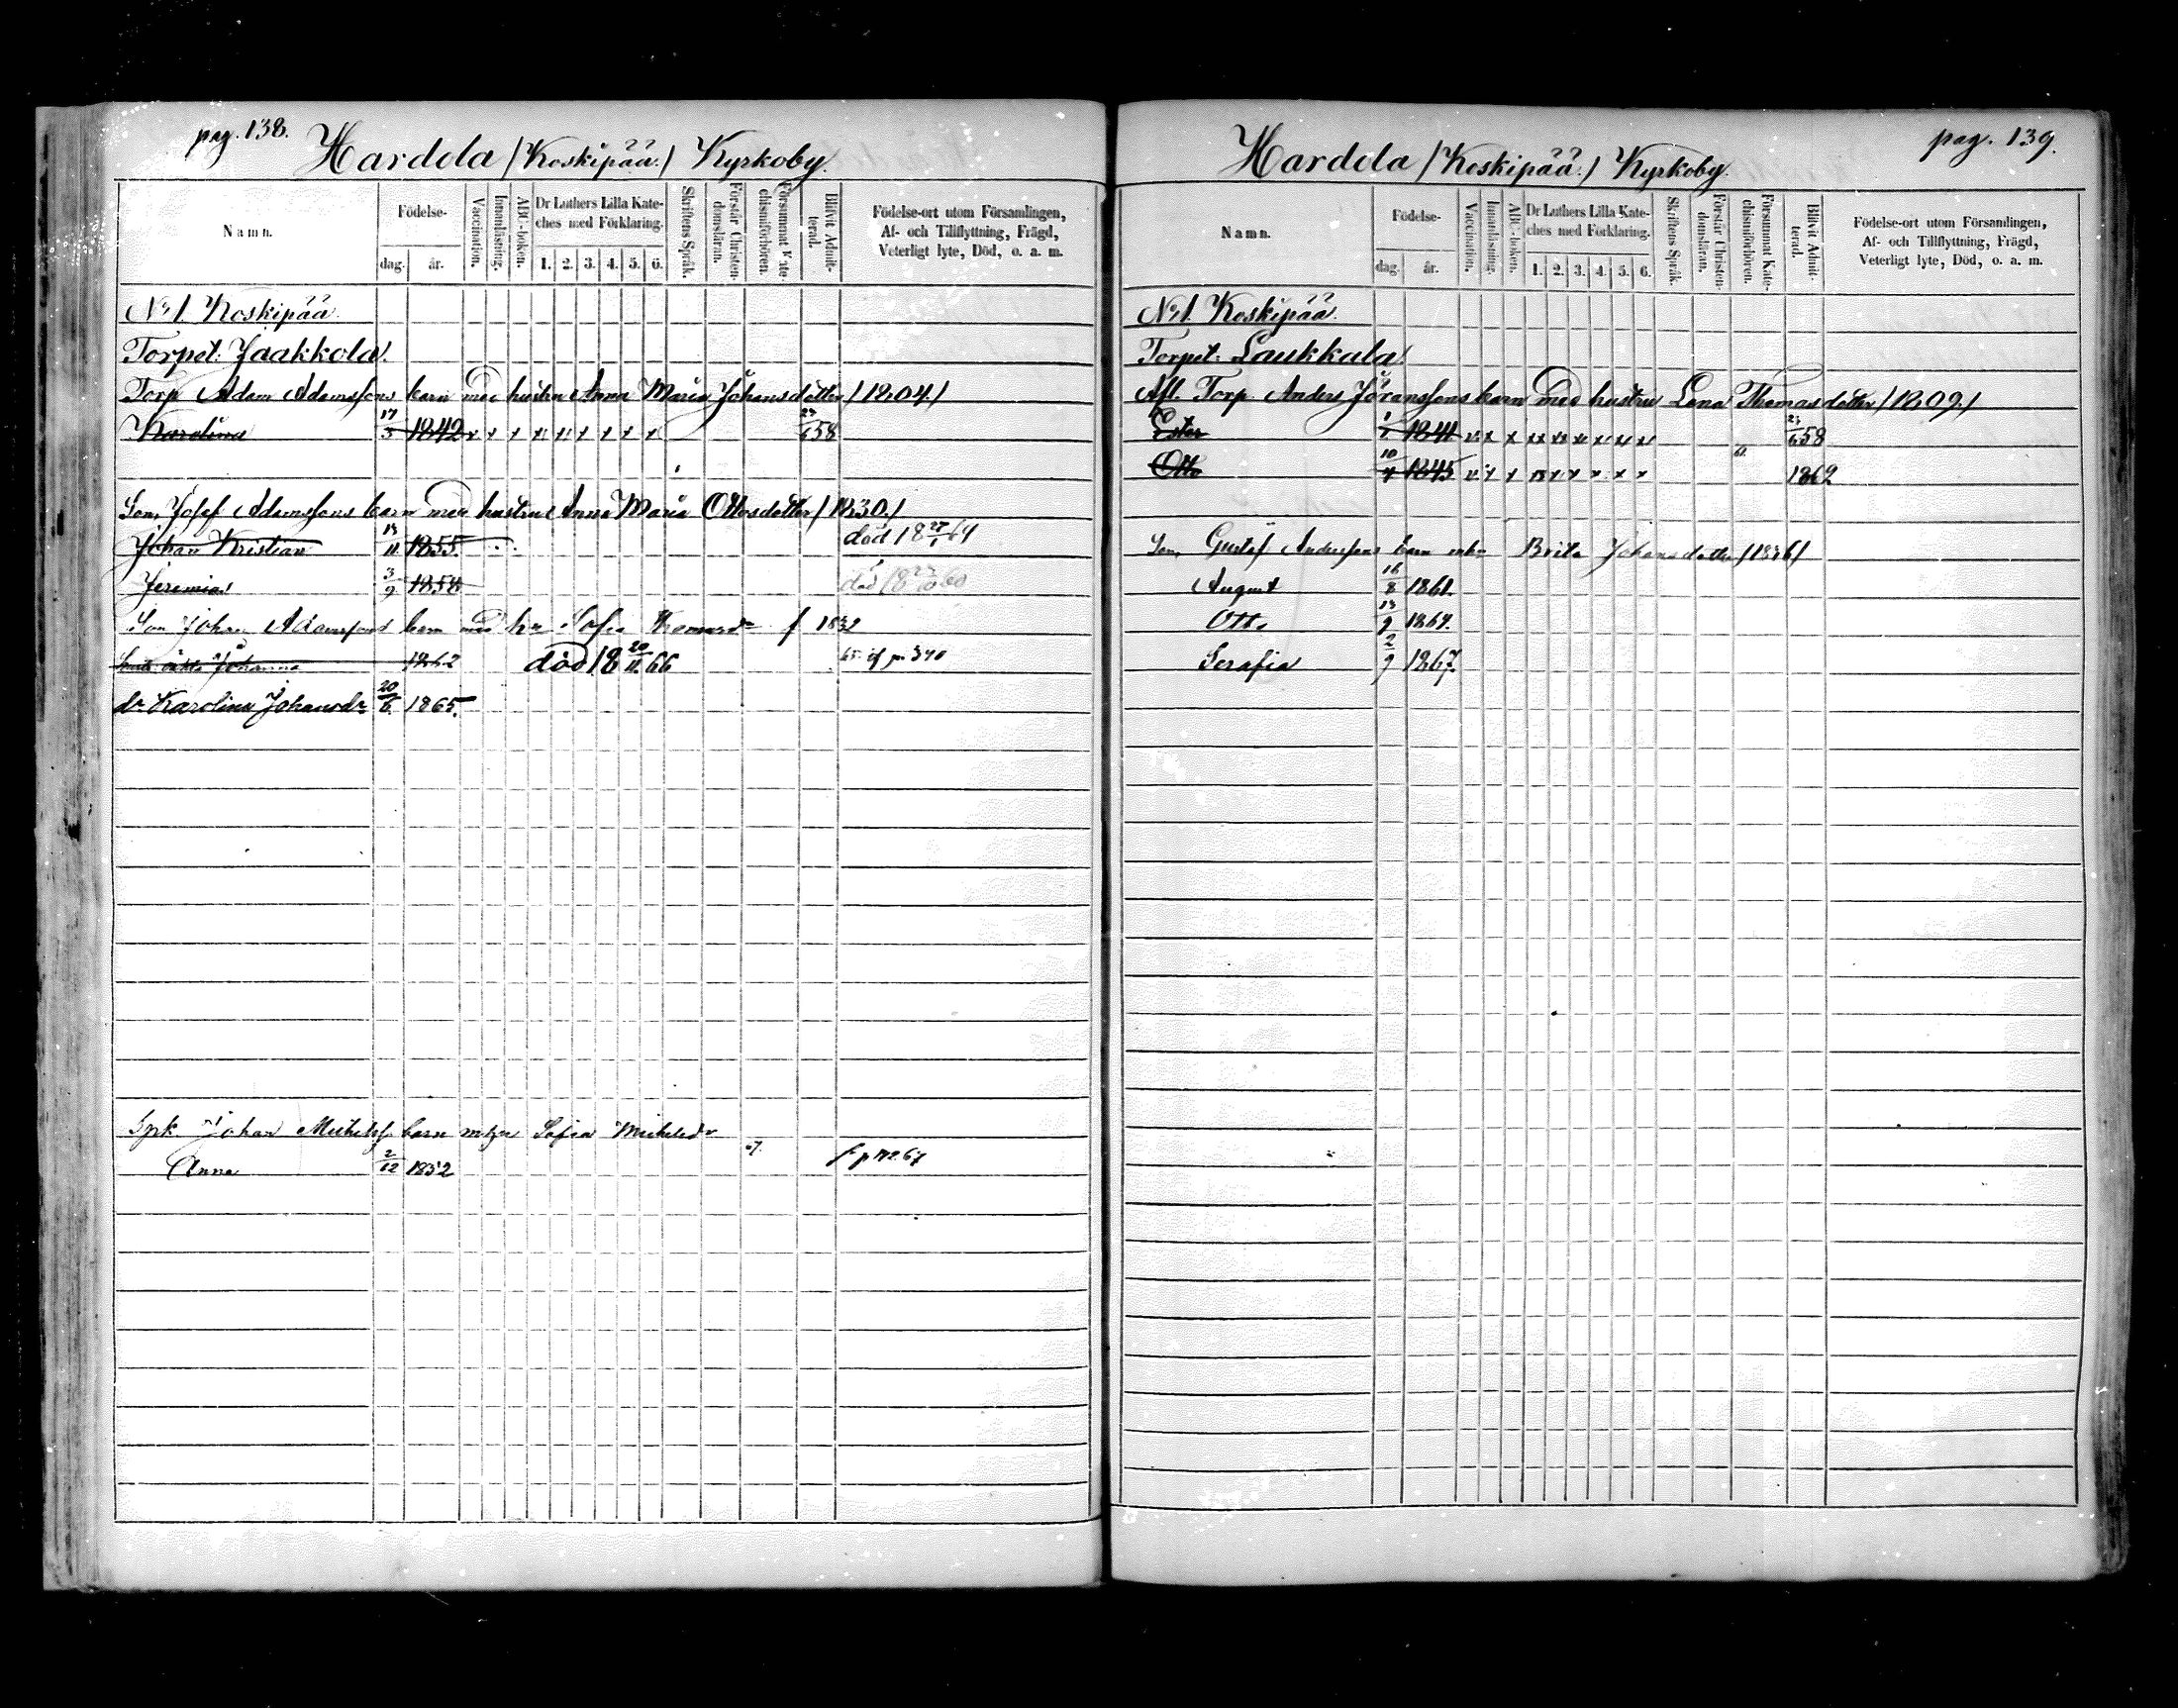 pag. 138.
Hardola /Koskipää./ Kyrkoby.
Namn.
Födelse-
dag. år.
Vaccination.
Innanläsning.
ABC-boken.
Dr Luthers Lilla Kate-
ches med Förklaring.
1. 2. 3. 4. 5. 6.
Skriftens Språk.
Förstår Christen-
domsläran.
Försummat Kate-
chismiförhören.
Blifvit Admit-
terad.
Födelse-ort utom Församlingen,
Af- och Tillflyttning, Frägd,
Veterligt lyte, Död, o. a. m.
No 1. Koskipää.
Torpet: Jaakkola.
Torp Adam Adamssons barn med hustru Anna Maria Johansdotter /1804./
Karolina 17/3 1842 58
Son, Josef Adamssons barn med hustru Anna Maria Ottosdotter /1830./
Johan Kristian 13/11 1855. död 18 27/1 64
Jeremias 3/9 1858 död 18 60
Son Johan Adamssons barn med hu Sofia f 1832
Johanna 1862 död 18 20/11 66
dr Karolina Johansdr 20/6 1865.
Spk. Johan Michelss. barn Sofia Michelsdr
Anna 2/12 1852 67.
pag. 139.
Hardola /Koskipää./ Kyrkoby.
Namn.
Födelse-
dag. år.
Vaccination.
Innanläsning.
ABC-boken.
Dr Luthers Lilla Kate-
ches med Förklaring.
1. 2. 3. 4. 5. 6.
Skriftens Språk.
Förstår Christen-
domsläran.
Försummat Kate-
chismiförhören.
Blifvit Admit-
terad.
Födelse-ort utom Församlingen,
Af- och Tillflyttning, Frägd,
Veterligt lyte, Död, o. a. m.
No 1. Koskipää.
Torpet: Laukkala.
Afl. Torp. Anders Jöranssons barn med hustru Lena Thomasdotter /1809./
Ester 1841 58
Otto 10/4 1845 1862
Son, Gustaf Anderssons barn Brita Johansdotter /1836/
August 16/8 1861.
Otto 13/9 1864.
Serafia 2/9 1867.